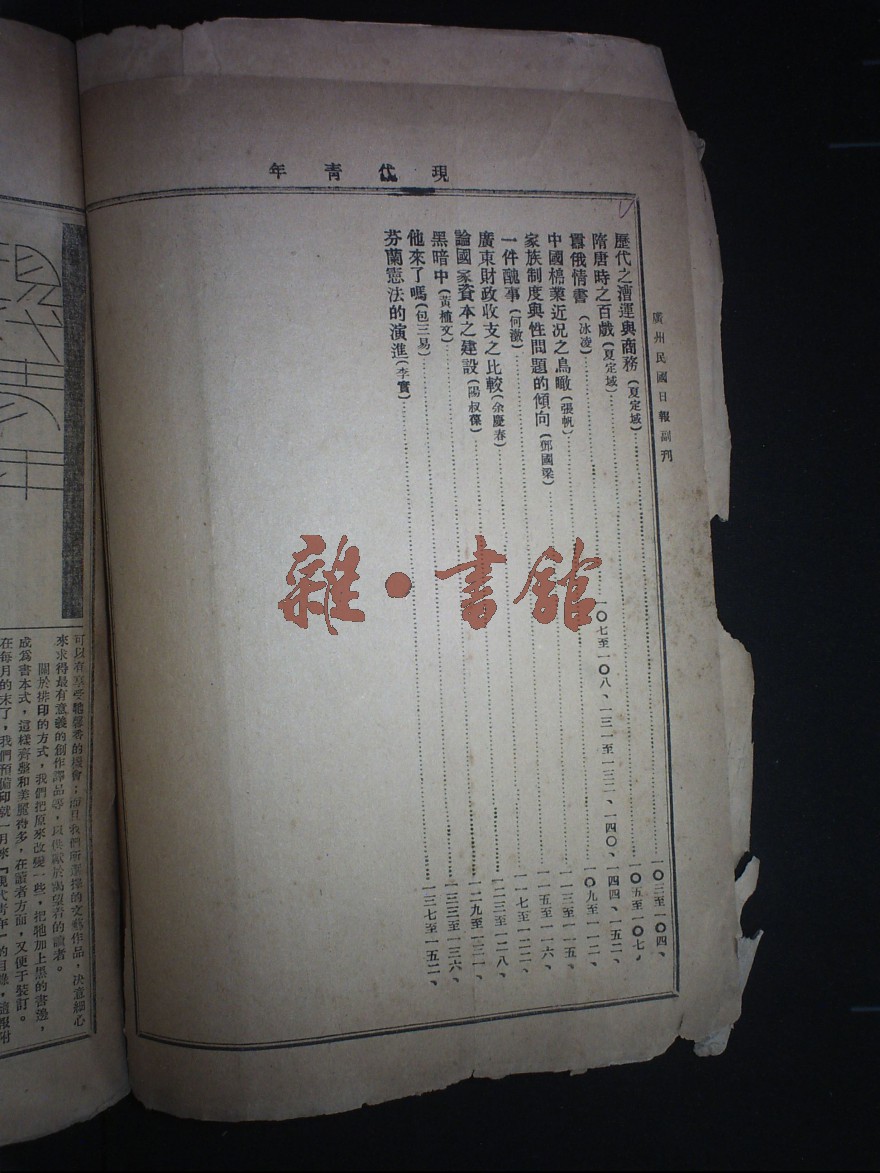 現代青年
廣州民國日報副刊
歷代之漕運與商務(夏定域)……一〇三至一〇四、
隋唐時之百戲(夏定域)……一〇五至一〇七、
囂俄情書(冰凌)……一〇七至一〇八、一三一至一三二、一四〇、一四四、一五二、
中國棉業近况之鳥瞰(張帆)……一〇九至一一二、
家族制度與性問題的傾向(鄧國梁)……一一三至一一五、
一件醜事(何澈)……一一五至一一六、
廣東財政收支之比較(余慶春)……一一七至一二二、
論國家資本之建設(陽叔葆)……一二三至一二八、
黑暗中(黃植文)……一二九至一三一、
他來了嗎(包三易)……一三三至一三六、
芬蘭憲法的演進(李實)……一三七至一五二、
雜·書館
可以有享受馨香的機會;而且我們所選擇的文藝作品,決意細心
來求得最有意義的創作譯品等,以供獻於渴望着的讀者。
關於排印的方式,我們把原來改變一些,把牠加上黑的書邊,
成爲書本式,這樣齊整和美麗得多,在讀者方面,又便于裝訂。
在每月的末了,我們預備印就一月來『現代青年』的目錄,隨報附